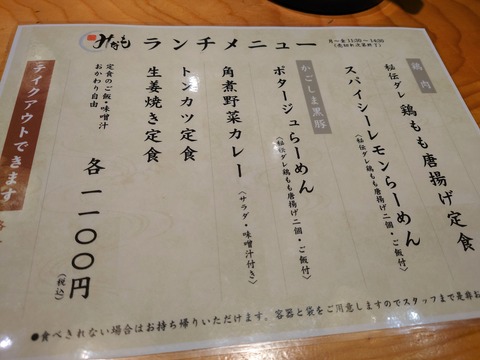 みなも
ランチメニュー
月～金 11:30～14:00
(売切れ次第終了)
鶏肉
秘伝ダレ 鶏もも唐揚げ定食
スパイシーレモンらーめん
(秘伝ダレ鶏もも唐揚げ二個・ご飯付)
かごしま黒豚
ポタージュらーめん
(秘伝ダレ鶏もも唐揚げ二個・ご飯付)
角煮野菜カレー
(サラダ・味噌汁付き)
トンカツ定食
生姜焼き定食
定食のご飯・味噌汁
おかわり自由
各一一〇〇円
(税込)
テイクアウトできます
●食べきれない場合はお持ち帰りいただけます。容器と袋をご用意しますのでスタッフまで是非お